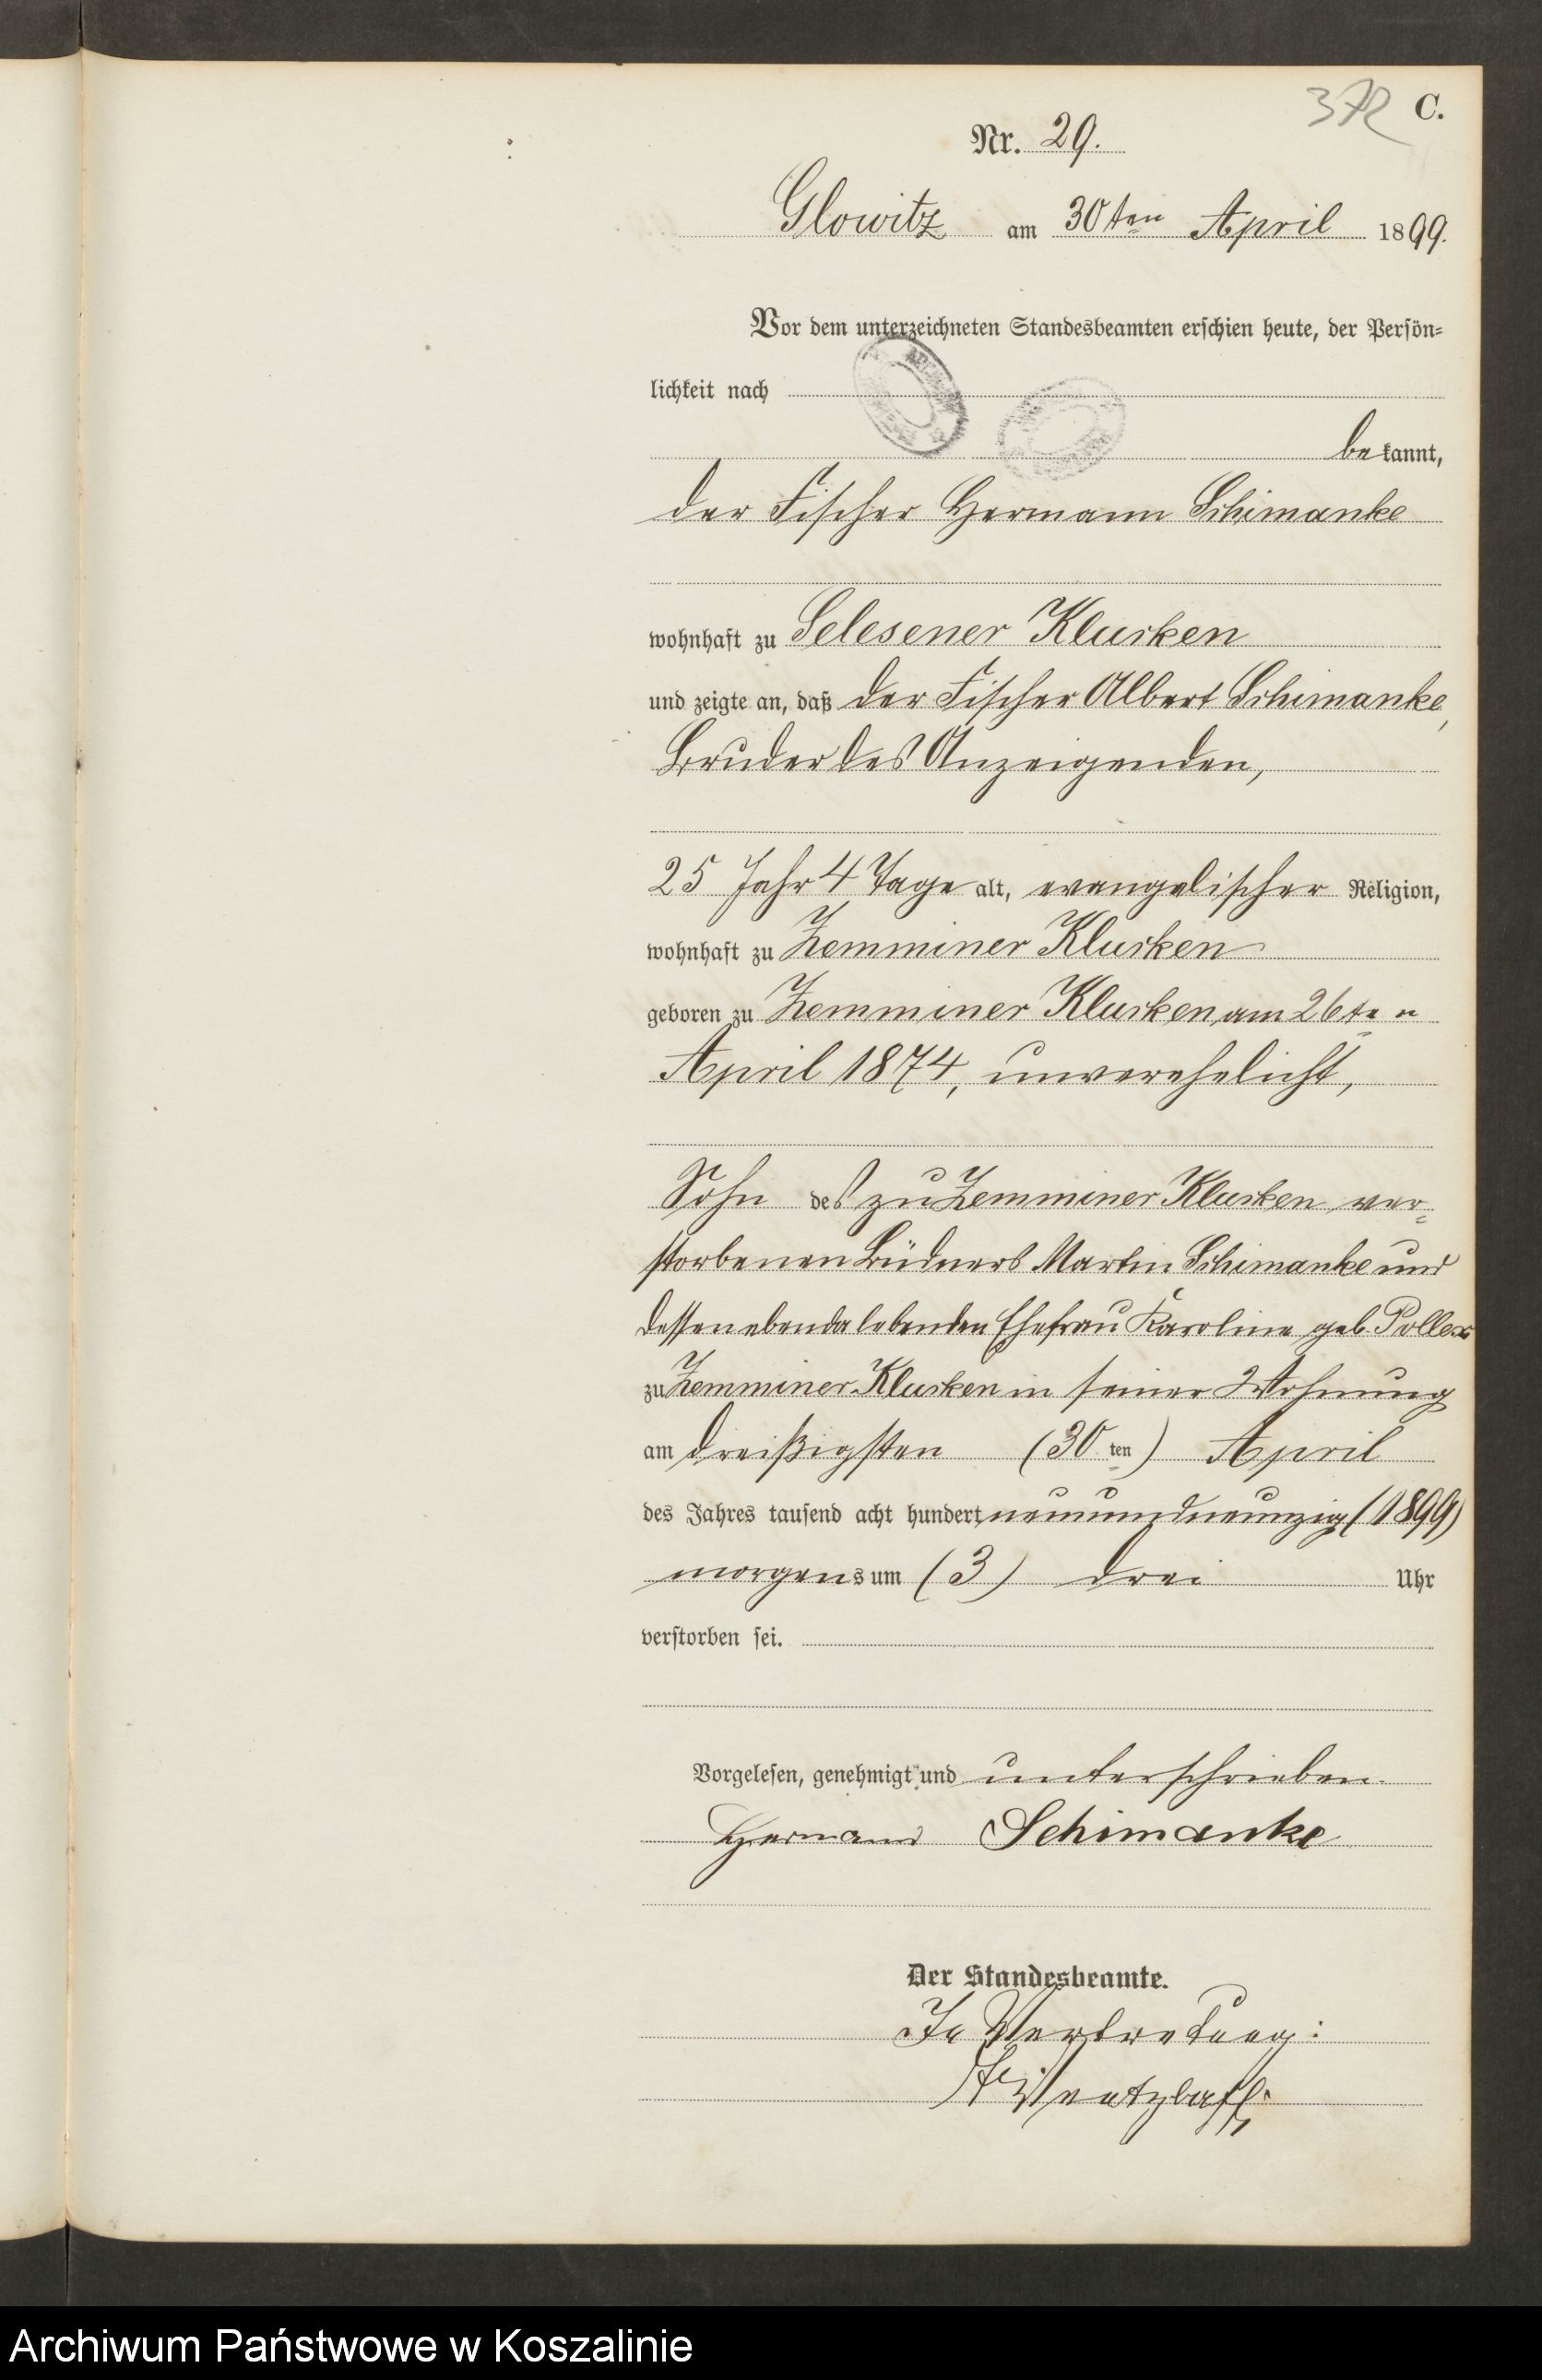 372 C.
Nr. 29.
Glowitz am 30ten April 1899.
Vor dem unterzeichneten Standesbeamten erschien heute, der Persön-
lichkeit nach
bekannt,
der Fischer Hermann Schimanke
wohnhaft zu Selesener Klucken
und zeigte an, daß der Fischer Albert Schimanke,
Bruder des Anzeigenden,
25 Jahr 4 Tage alt, evangelischer Religion,
wohnhaft zu Zemminer Klucken
geboren zu Zemminer Klucken, am 26ten
April 1874, unverehelicht,
Sohn des zu Zemminer Klucken ver-
storbenen Büdners Martin Schimanke und
dessen ebenda lebenden Ehefrau Karoline geb. Pollex
zu Zemminer Klucken in seiner Wohnung
am dreißigsten (30ten) April
des Jahres tausend acht hundert neunundneunzig (1899)
morgens um (3) drei Uhr
verstorben sei.
Vorgelesen, genehmigt und unterschrieben.
Hermann Schimanke
Der Standesbeamte.
In Vertretung:
Archiwum Państwowe w Koszalinie